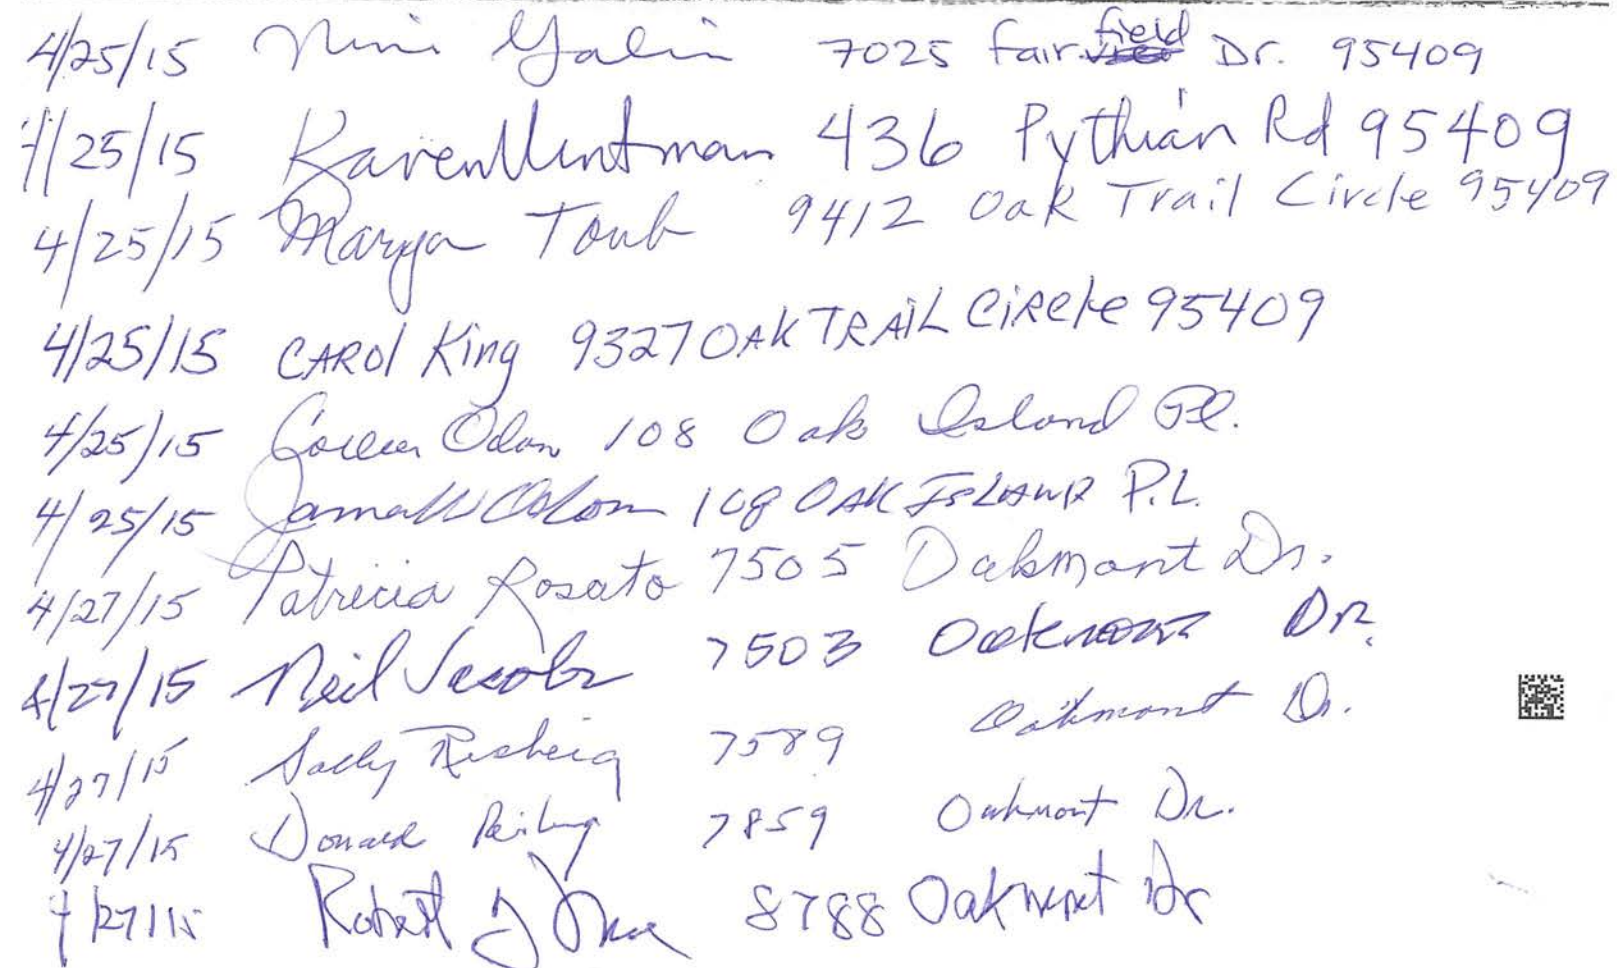 4/25/15 Nini Galin 7025 Fairfield Dr. 95409
4/25/15 Karen 436 Pythian Rd 95409
4/25/15 Marya Toub 9412 Oak Trail Circle 95409
4/25/15 CAROl King 9327 OAK TRAiL CiRcle 95409
4/25/15 108 Oak Island Pl.
4/25/15 108 OAK ISLAND P.L.
4/27/15 Patricia Rosato 7505 Oakmont Dr.
4/27/15 Neil Jacobs 7503 Oakmont DR.
4/27/15 Sally 7589 Oakmont Dr.
4/27/15 Donald 7859 Oakmont Dr.
4/27/15 Robert J 8788 Oakmont Dr